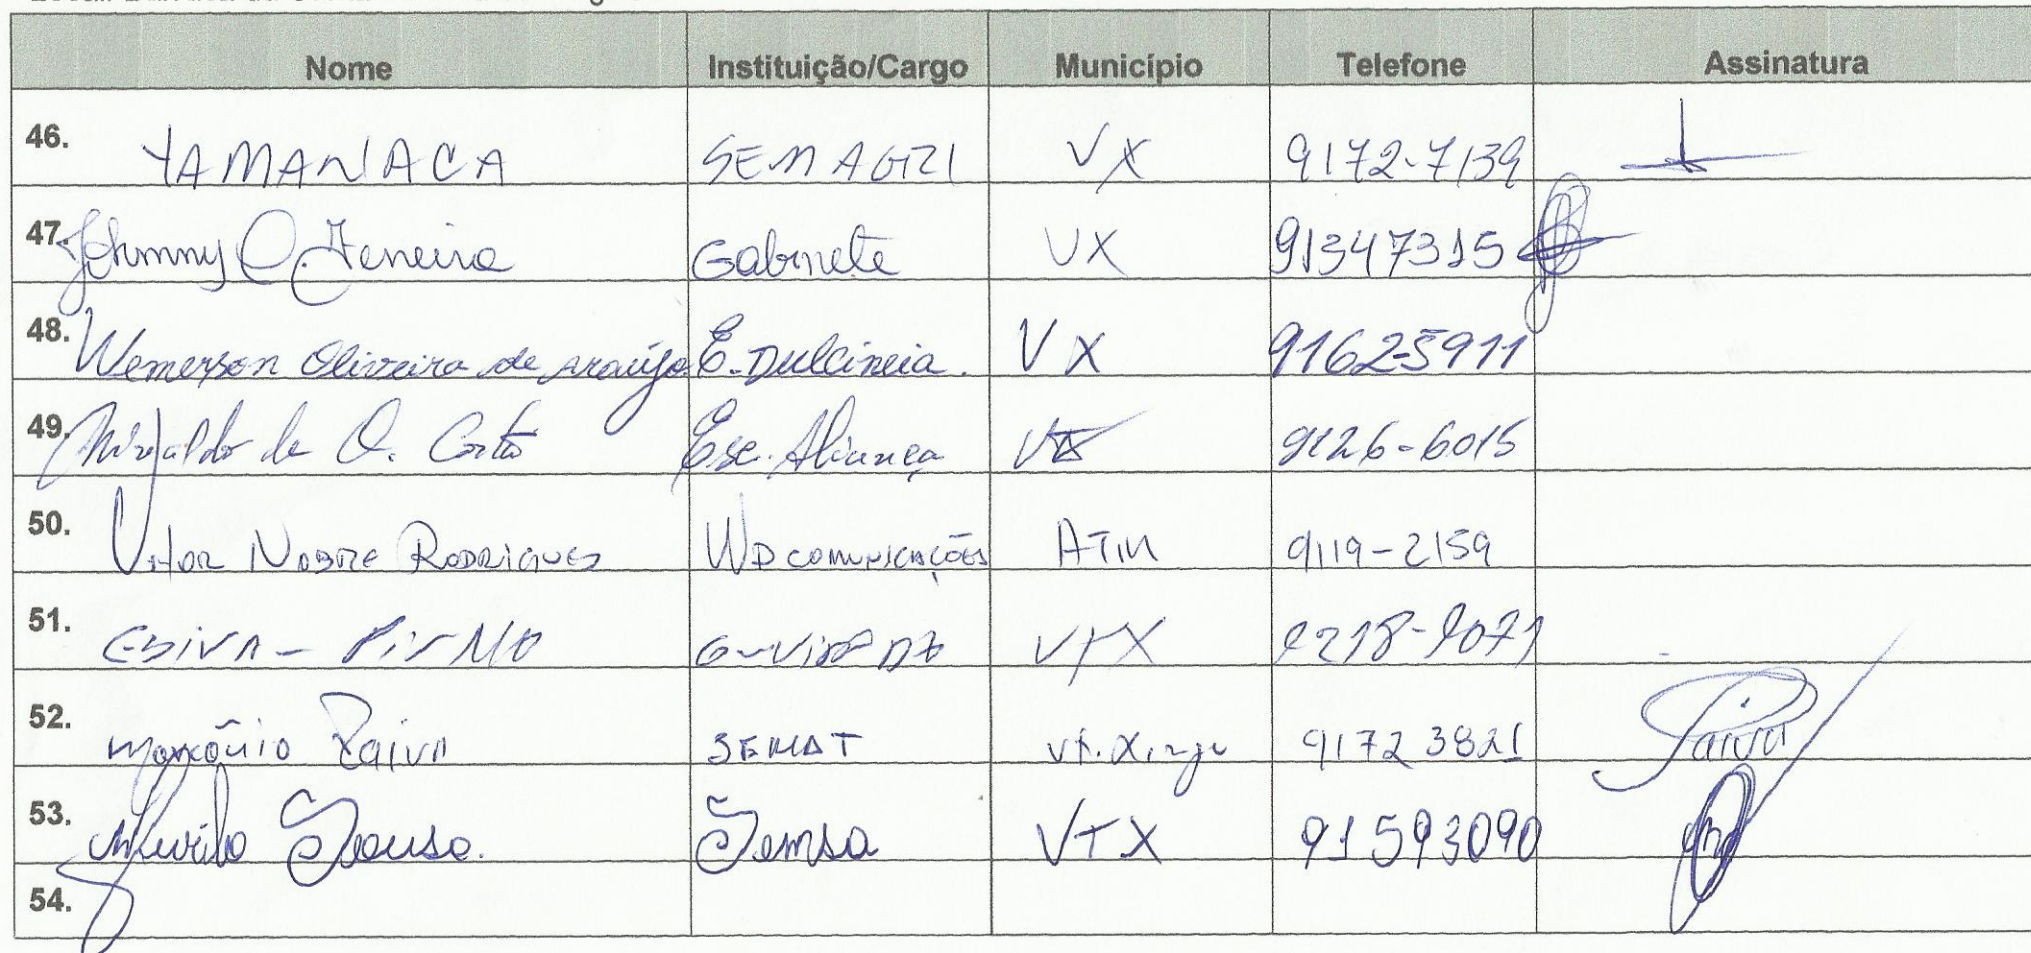 Nome Instituição/Cargo Município Telefone Assinatura
46. YAMANACA SEMAGRI VX 9172-7139
47. Johnny C. Ferreira Gabinete VX 91347315
48. Wemerson Oliveira de Araújo E. Dulcineia. VX 91625911
49. de O. Esc. Aliança 9126-6015
50. Vitor Nobre Rodrigues WD comunicações ATM 9119-2159
51. VTX
52. Paiva SEMAT Vt. Xingu 9172 3821 Paiva
53. Murilo Sousa. Semsa VTX 91593090
54.